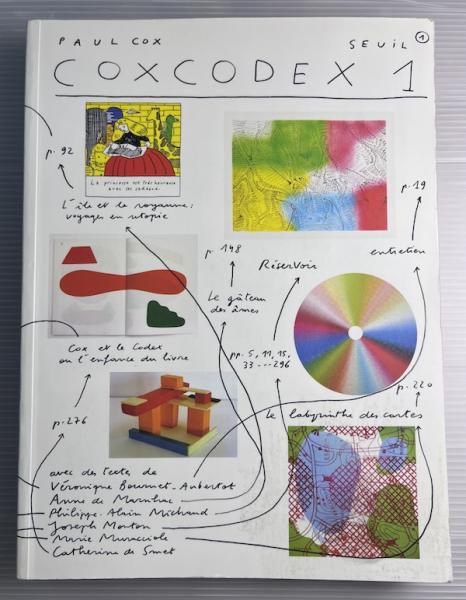 PAUL COX
SEUIL 1
COXCODEX 1
p. 92
La princesse est très heureuse
avec ses cadeaux.
L'île et le royaume :
voyages en utopie
p. 19
entretien
p. 148
Réservoir
Le gâteau
des âmes
Cox et le Codex
ou l'enfance du livre
pp. 5, 11, 15,
33 --- 296
p. 220
p. 276
Le labyrinthe des cartes
avec des textes de
Véronique Bouruet-Aubertot
Anne de Marnhac
Philippe-Alain Michaud
Joseph Morton
Marie Muracciole
Catherine de Smet